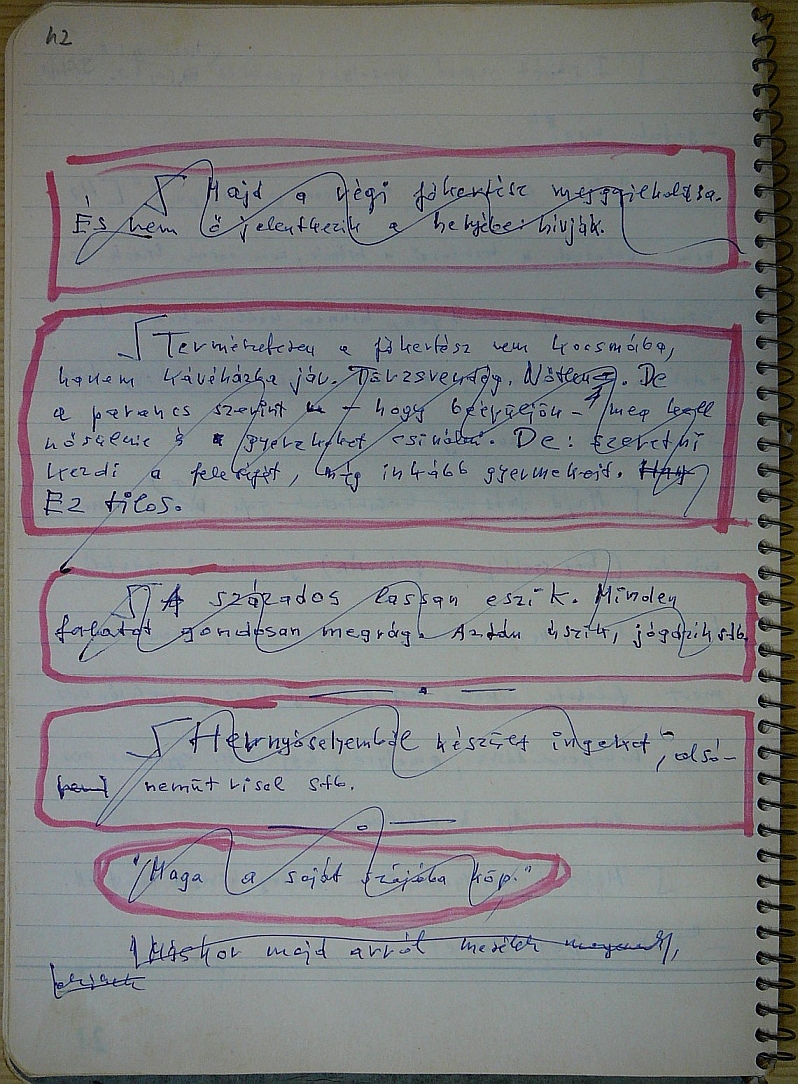 42
Majd a régi főkertész meggyilkolása.
És nem ő jelentkezik a helyébe: hívják.
Természetesen a főkertész nem kocsmába,
hanem kávéházba jár. Törzsvendég. Nőtlen. De
a parancs szerint – hogy beépüljön – meg kell
nősülnie s gyerekeket csinálni. De: szeretni
kezdi a feleségét, még inkább gyermekeit.
Ez tilos.
A százados lassan eszik. Minden
falatot gondosan megrág. Aztán úszik, jógázik stb.
Hernyóselyemből készült ingeket, alsó-
neműt visel stb.
"Maga a saját szájába köp."
Máskor majd arról mesélek